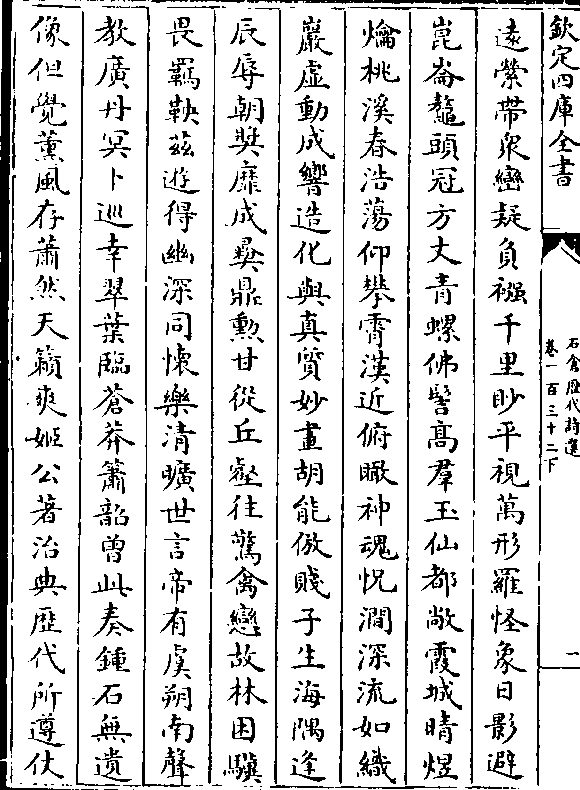 欽定四庫全書
石倉歷代詩選
卷一百三十二下
一
遠縈帶衆巒疑負襁千里眇平視萬形羅怪象日影避
崑崙鼇頭冠方丈青螺佛髻髙羣玉仙都敞霞城晴煜
爚桃溪春浩蕩仰攀霄漢近俯瞰神魂怳澗深流如織
巖虛動成響造化與真質妙畫胡能倣賤子生海隅逢
辰辱朝奬靡成彛鼎勲甘從丘壑往驚禽戀故林困驥
畏羈鞅兹遊得幽深同懷樂清曠世言帝有虞朔南聲
教廣丹冥卜巡幸翠葉臨蒼莽簫韶曽此奏鍾石無遺
像但覺薫風存蕭然天籟爽姬公著治典歴代所遵仗